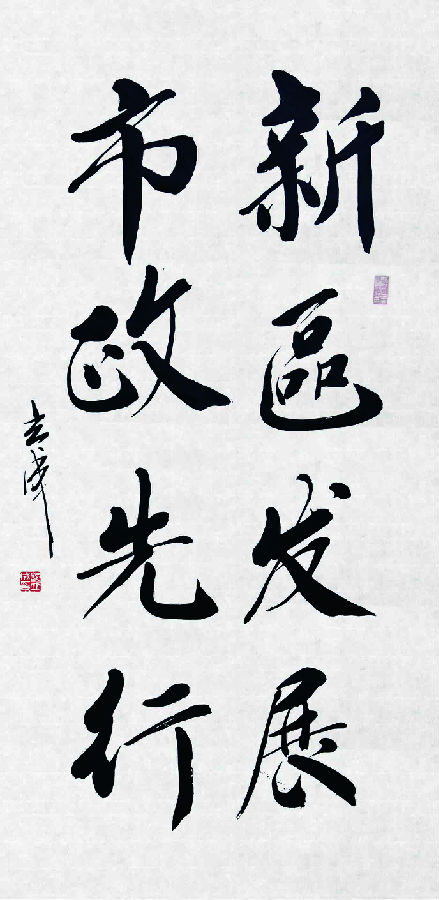 新區发展
市政先行